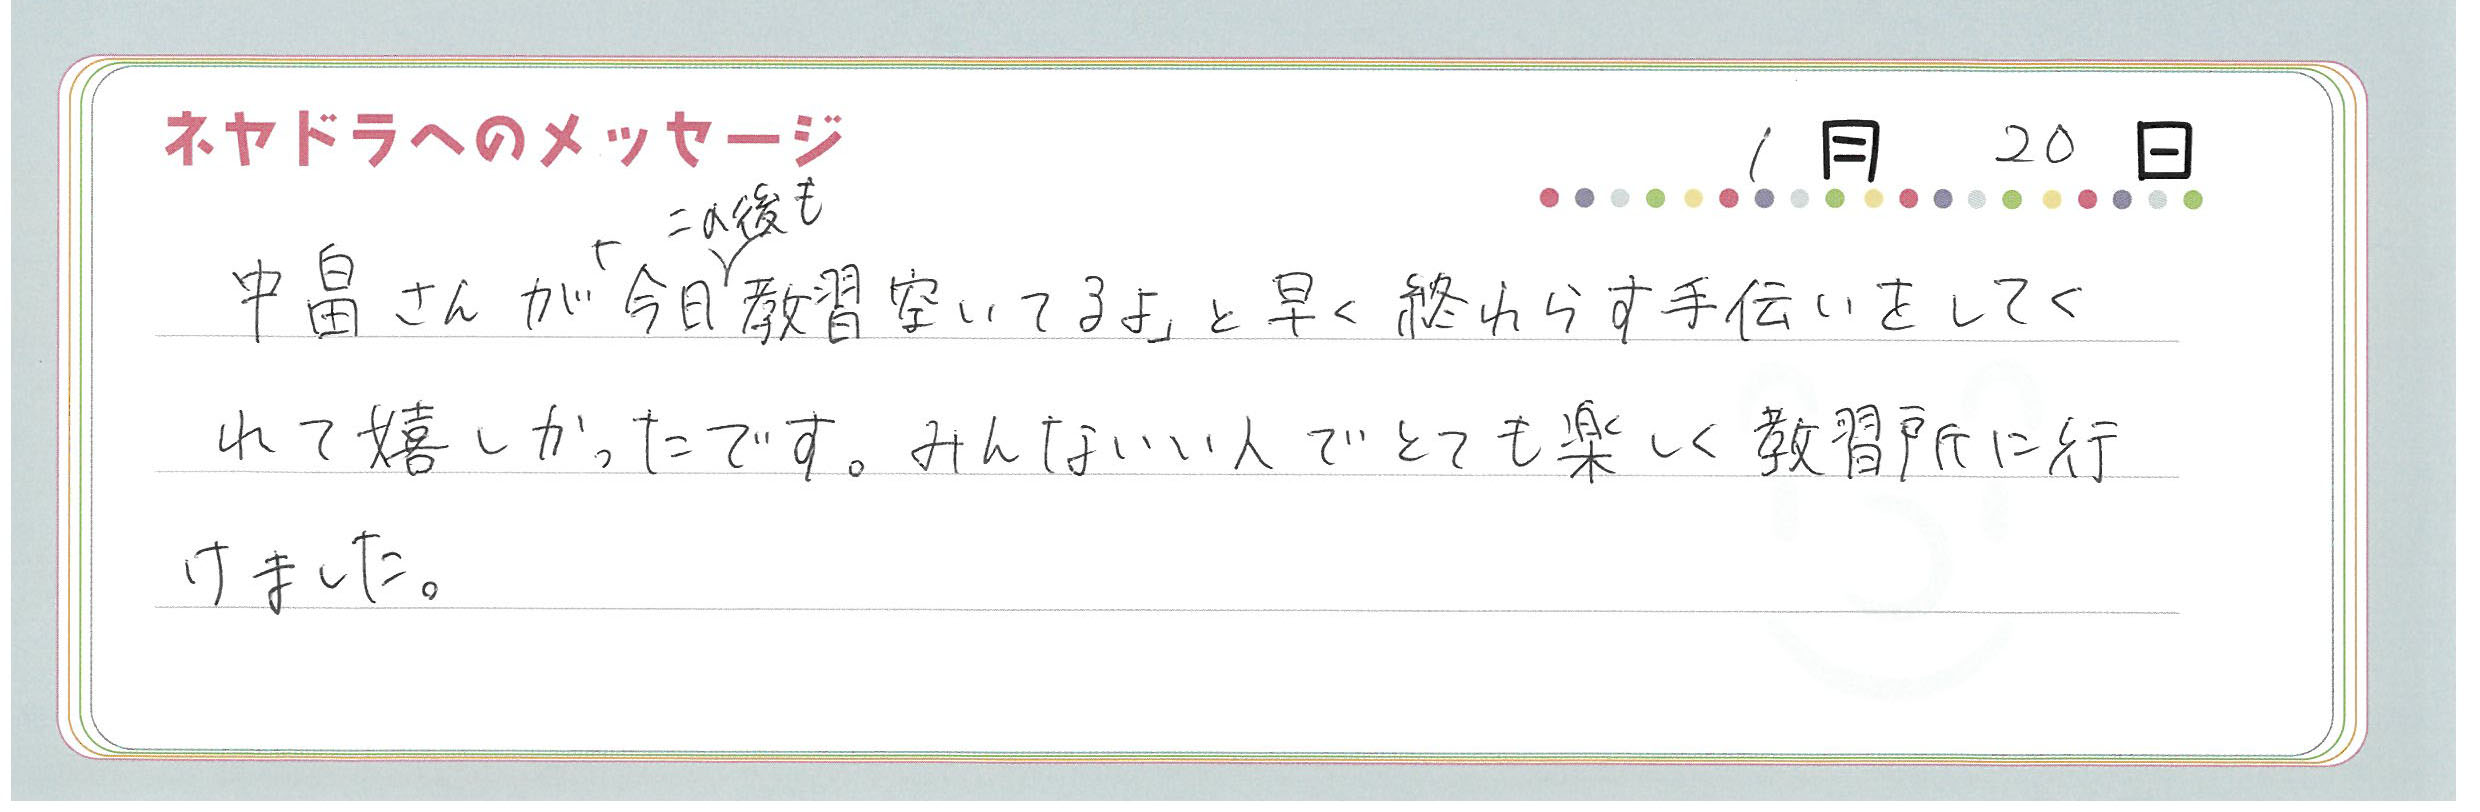 ネヤドラへのメッセージ
1月 20日
この後も
中畠さんが「今日教習空いてるよ」と早く終わらす手伝いをしてく
れて嬉しかったです。みんないい人でとても楽しく教習所に行
けました。